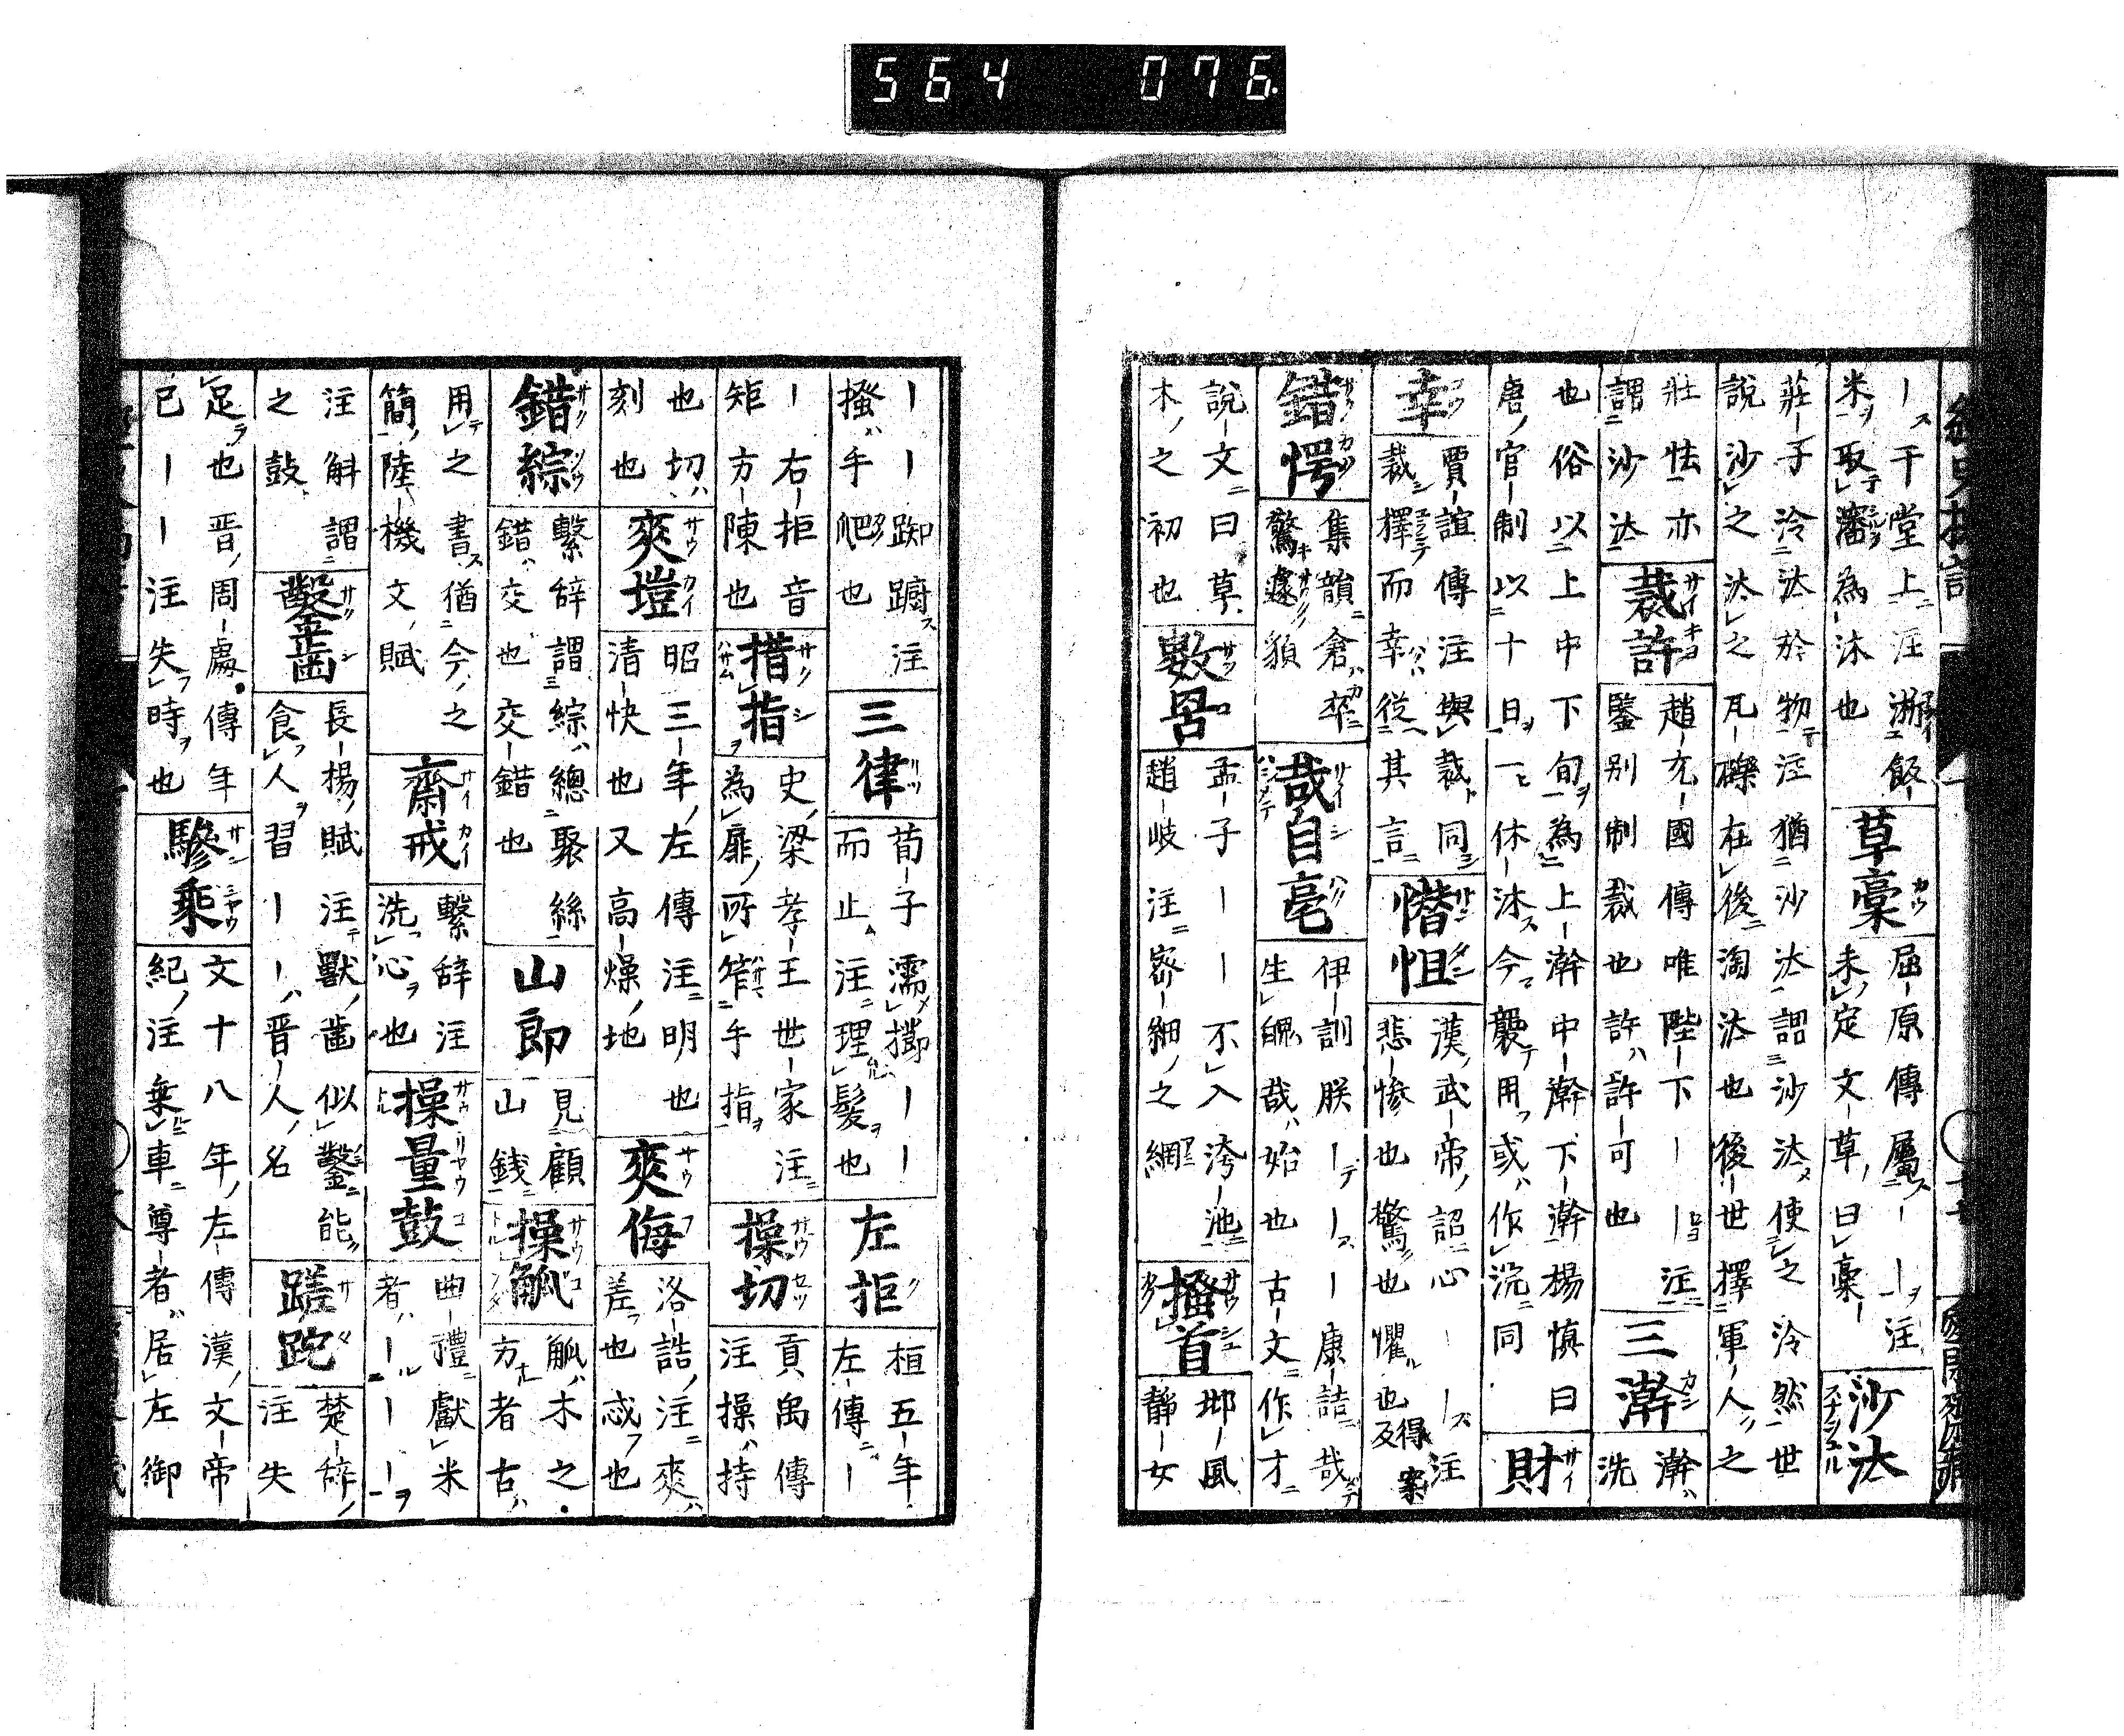 564 076
ース于堂上ニ注淅飯ー
米ヲ取テ瀋為沐也
草藁
屈原傳屬スーーヲ注
未定文草曰藁ー
沙汰
莊子泠汰於物注猶沙汰謂沙汰使之泠然世
説沙之汰之瓦礫在後淘汰也後世擇軍人之
壯怯亦
謂沙汰
裁許
趙充國傳唯陛下ーー注
鑒別制裁也許ハ許可也
三澣
澣ハ洗
也俗以上中下旬為上澣中澣下澣楊慎曰
唐ノ官制以十日一休沐今襲用或ハ作浣同
財
幸
賈誼傳注與裁同
裁擇而幸從其言
憯怛
漢武帝詔心ーー注
悲慘也驚也懼也
錯愕
集韻倉卒
驚遽貌
哉自亳
伊訓朕ーーー康誥哉
生魄哉ハ始也古文作才
説文曰草
木ノ之初也
數罟
孟子ーーー不入洿池
趙岐注密細ノ之網
搔首
邶風
靜女
ーー踟躕ス注
搔ハ手爬也
三律
荀子濡櫛ーー
而止注理髮ヲ也
左拒
桓五年
左傳ー
ー右拒音
矩方陳也
措指
史梁孝王世家注
為扉所笮手指
操切
貢禹傳
注操ハ持
也切ハ
刻也
爽塏
昭三年左傳注明也
清快也又高燥ノ地
爽侮
洛誥注爽ハ
差也忒也
錯綜
繫辞謂綜ハ總聚絲
錯ハ交也交錯也
山郎
見顧
山錢
操觚
觚ハ木之
方者古ハ
用之書猶今ノ之
簡陸機文ノ賦
齋戒
繫辞注
洗心也
操量鼓
曲禮獻米
者ハーーー
注斛謂
之鼓
鑿齒
長楊賦注獸ノ齒似鑿能
食人習ーーハ晋人ノ名
蹉跎
楚辞ノ
注失
足也晋周處傳年
已ーー注失時也
驂乘
文十八年左傳漢文帝
紀注乗車尊者ハ居左御